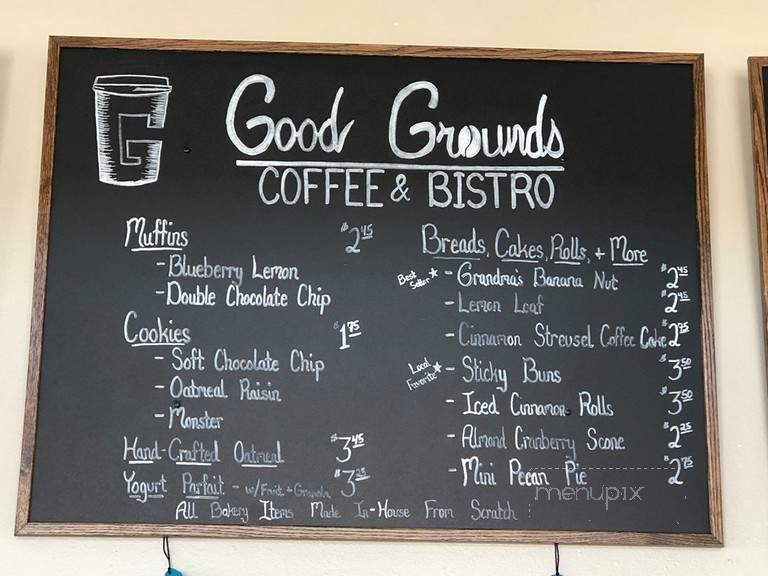 G
Good Grounds
COFFEE & BISTRO
Muffins $2.45
- Blueberry Lemon
- Double Chocolate Chip
Cookies $1.75
- Soft Chocolate Chip
- Oatmeal Raisin
- Monster
Hand-Crafted Oatmeal $3.45
Yogurt Parfait - w/ Fruit + Granola $3.25
Breads, Cakes, Rolls, + More
Best Seller - Grandma's Banana Nut $2.45
- Lemon Loaf $2.45
- Cinnamon Streusel Coffee Cake $2.75
Local Favorite - Sticky Buns $3.50
- Iced Cinnamon Rolls $3.50
- Almond Cranberry Scone $2.25
- Mini Pecan Pie $2.75
All Bakery Items Made In-House From Scratch
menupix